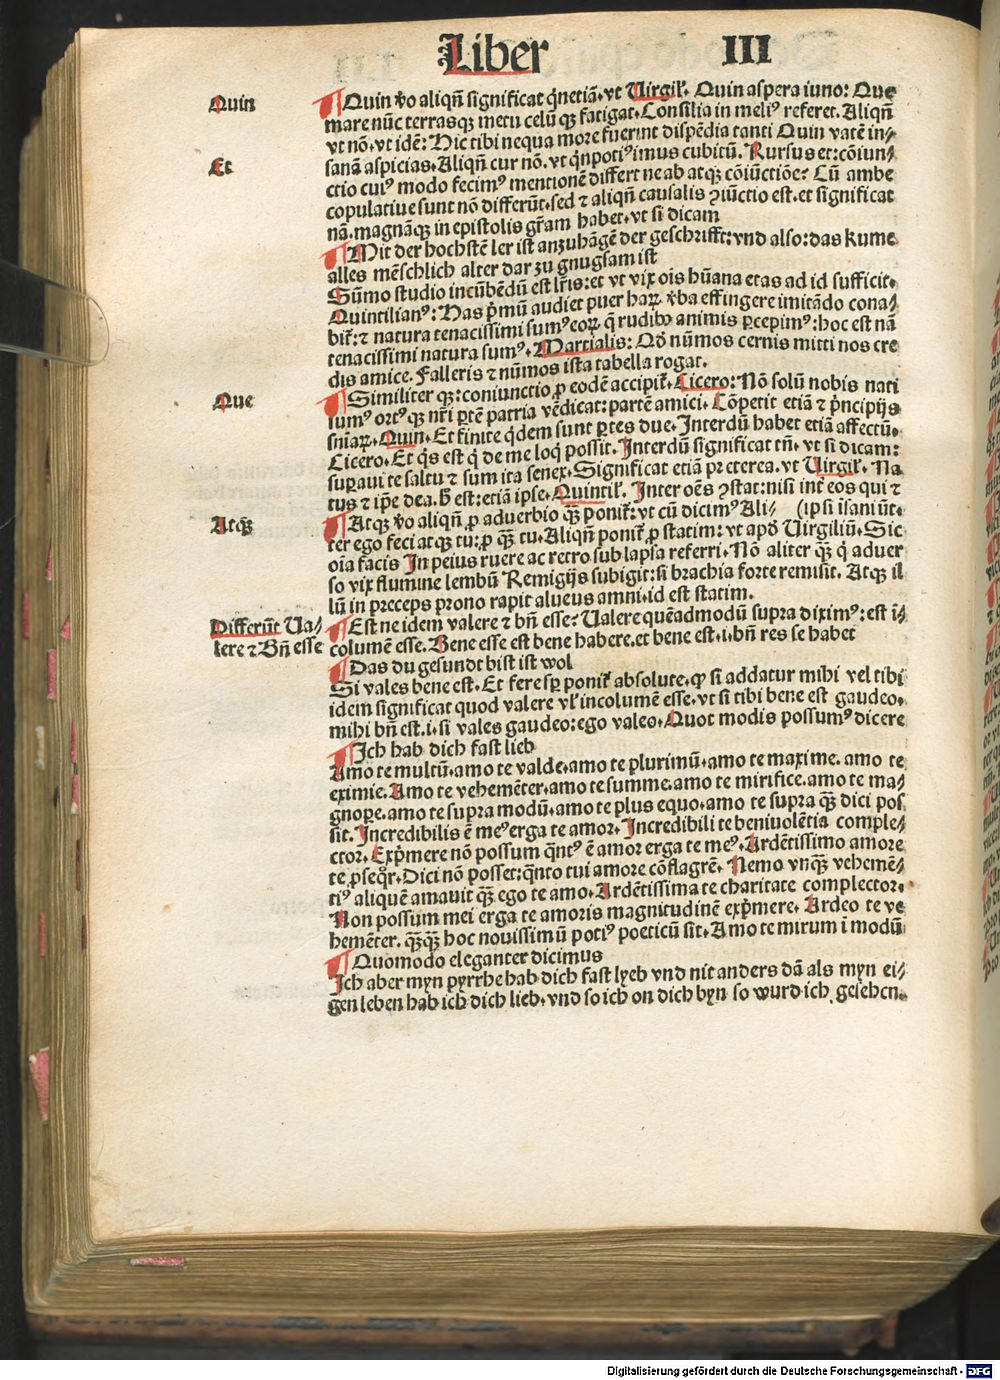 Liber III
Quin
¶Quin ṽo aliqñ significat q̃netiã. vt Uirgil'. Quin aspera iuno: Que
mare nũc terrasqꝫ metu celũ qꝫ fatigat. Consilia in meliꝰ referet. Aliqñ
vt nõ. vt idẽ: Hic tibi nequa more fuerint dispẽdia tanti Quin vatẽ in⸗
Et
sanã aspicias. Aliqñ cur nõ. vt qñ potiꝰ imus cubitũ. Rursus et: cõiun⸗
ctio cuiꝰ modo fecimꝰ mentionẽ differt ne ab atqꝫ cõiũctiõe? Cũ ambe
copulatiue sunt nõ differũt. sed ⁊ aliqñ causalis ꝯiũctio est. et significat
nã. magnãqꝫ in epistolis gr̃am habet. vt si dicam
¶Mit der hochstẽ ler ist anzuhãgẽ der geschrifft: vnd also: das kume
alles mẽschlich alter dar zu gnugsam ist
Sũmo studio incũbẽdũ est lr̃is: et vt vix ois hũana etas ad id sufficit.
Quintilianꝰ: Has p̃mũ audiet puer haꝝ ṽba effingere imitãdo cona⸗
bit᷑: ⁊ natura tenacissimi sumꝰ eoꝝ q̃ rudibꝰ animis ꝑcepimꝰ: hoc est nã
tenacissimi natura sumꝰ. Martialis: Qđ nũmos cernis mitti nos cre
dis amice. Falleris ⁊ nũmos ista tabella rogat.
Que
¶Similiter qꝫ: coniunctio ꝓ eodẽ accipit᷑. Cicero: Nõ solũ nobis nati
sumꝰ ortꝰ qꝫ nr̃i ꝑtẽ patria vẽdicat: partẽ amici. Cõpetit etiã ⁊ p̃ncipijs
sniãꝝ. Quin. Et finite q̃dem sunt ꝑtes due. Interdũ habet etiã affectũ.
Cicero. Et q̃s est q̃ de me loq̃ possit. Interdũ significat tñ. vt si dicam:
suꝑaui te saltu ⁊ sum ita senex. Significat etiã preterea. vt Uirgil'. Na
tus ⁊ ip̃e dea. ħ est: etiã ipse. Quintil'. Inter oẽs ꝯstat: nisi int̃ eos qui ⁊
Atqꝫ
¶Atqꝫ ṽo aliqñ ꝓ aduerbio qꝫ̃ ponit᷑: vt cũ dicimꝰ Ali⸗ (ipsi isani sũt.
ter ego feci atqꝫ tu: ꝓ qꝫ̃ tu. Aliqñ ponit᷑ ꝓ statim: vt apđ Uirgiliũ. Sic
oĩa facis In peius ruere ac retro sub lapsa referri. Nõ aliter qꝫ̃ q̃ aduer
so vix flumine lembũ Remigijs subigit: si brachia forte remisit. Atqꝫ il
lũ in preceps prono rapit alueus amni. id est statim.
Differũt Ua⸗
lere ⁊ Bñ esse
¶Est ne idem valere ⁊ bñ esse? Ualere quẽadmodũ supra diximꝰ: est ĩ⸗
columẽ esse. Bene esse est bene habere. et bene est. i. bñ res se habet
¶Das du gesundt bist ist wol
Si vales bene est. Et fere sꝑ ponit᷑ absolute. ꝙ si addatur mihi vel tibi
idem significat quod valere vl' incolumẽ esse. vt si tibi bene est gaudeo.
mihi bñ est. i. si vales gaudeo: ego valeo. Quot modis possumꝰ dicere
¶Ich hab dich fast lieb
Amo te multũ. amo te valde. amo te plurimũ. amo te maxime. amo te
eximie. Amo te vehemẽter. amo te summe. amo te mirifice. amo te ma⸗
gnope. amo te supra modũ. amo te plus equo. amo te supra qꝫ̃ dici pos
sit. Incredibilis ẽ meꝰ erga te amor. Incredibili te beniuolẽtia comple⸗
ctor. Exp̃mere nõ possum q̃ntꝰ ẽ amor erga te meꝰ. Ardẽtissimo amore
te ꝓseq̃r. Dici nõ posset: q̃nto tui amore cõflagrẽ. Nemo vnqꝫ̃ vehemẽ⸗
tiꝰ aliquẽ amauit qꝫ̃ ego te amo. Ardẽtissima te charitate complector.
Non possum mei erga te amoris magnitudinẽ exp̃mere. Ardeo te ve
hemẽter. qꝫ̃qꝫ̃ hoc nouissimũ potiꝰ poeticũ sit. Amo te mirum ĩ modũ
¶Quomodo eleganter dicimus
Ich aber myn pyrrhe hab dich fast lyeb vnd nit anders dã als myn ei⸗
gẽn leben hab ich dich lieb. vnd so ich on dich byn so wurd ich gesehen.
Digitalisierung gefördert durch die Deutsche Forschungsgemeinschaft - DFG